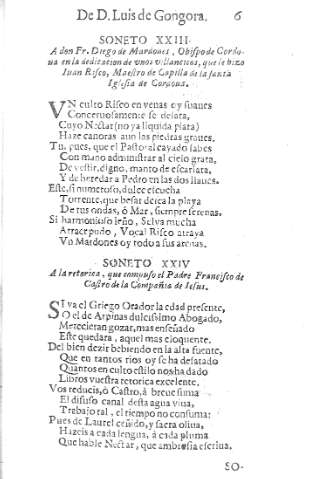 De D. Luis de Gongora. 6
SONETO XXIII.
A don Fr. Diego de Mardones, Obispo de Cordo-
ua en la dedicacion de vnos villancicos, que le hizo
Iuan Risco, Maestro de Capilla de la santa
Iglesia de Cordoua.
VN culto Risco en venas oy suaues
Concentuosamente se desata,
Cuyo Nectar (no ya liquida plata)
Haze canoras aun las piedras graues.
Tu, pues, que el Pastoral cayado sabes
Con mano administrar al cielo grata,
De vestir, digno, manto de escarlata,
Y de heredar a Pedro en las dos llaues.
Este, si numeroso, dulce escucha
Torrente, que besar desea la playa
De tus ondas, ò Mar, siempre serenas.
Si harmonioso leño, Selua mucha
Atrae pudo, Vocal Risco atraya
Vn Mardones oy todo a sus arenas.
SONETO XXIV
A la retorica, que compuso el Padre Francisco de
Castro de la Compañia de Iesus.
SI ya el Griego Orador la edad presente,
O el de Arpinas dulcissimo Abogado,
Merecieran gozar, mas enseñado
Este quedara, aquel mas eloquente.
Del bien dezir bebiendo en la alta fuente,
Que en tantos rios oy se ha desatado
Quantos en culto estilo nos ha dado
Libros vuestra retorica excelente.
Vos reducis, ô Castro, à breue suma
El difuso canal desta agua viua,
Trabajo tal, el tiempo no consuma:
Pues de Laurel ceñido, y sacra oliua,
Hazeis a cada lengua, à cada pluma
Que hable Nectar, que ambrosia escriua.
SO-